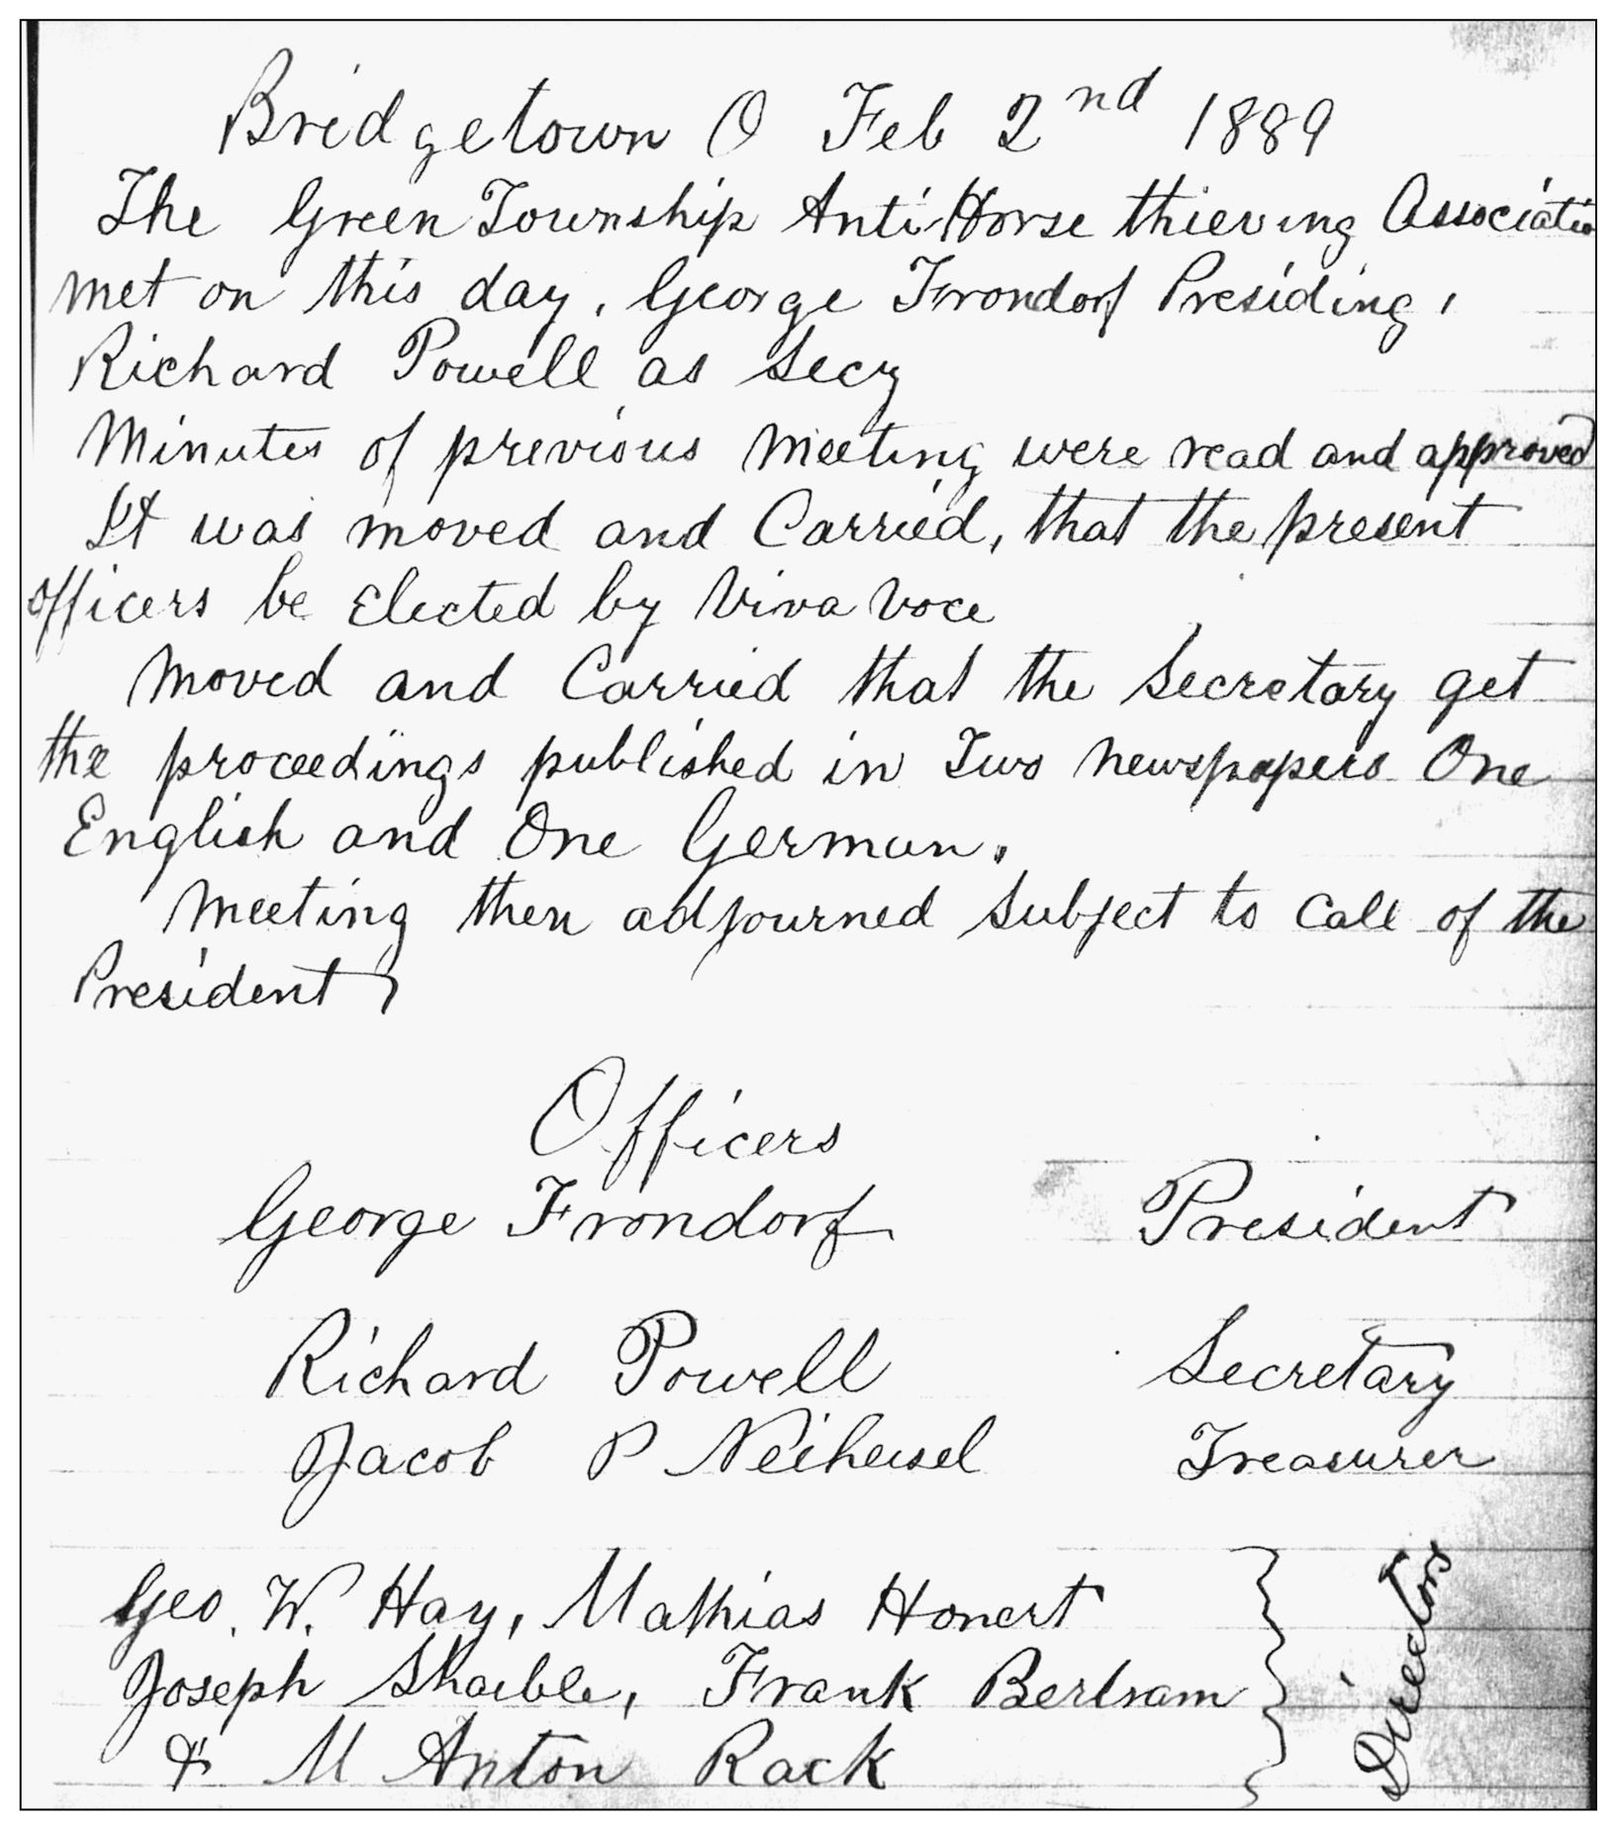 Bridgetown O Feb 2nd 1889
The Green Township Anti-Horse thieving Associatio
met on this day, George Frondorf Presiding,
Richard Powell as Secy
Minutes of previous meeting were read and approved
It was moved and Carried, that the present
officers be Elected by Viva Voce
Moved and Carried that the Secretary get
the proceedings published in Two newspapers One
English and One German.
Meeting then adjourned Subject to Call of the
President
Officers
George Frondorf President
Richard Powell Secretary
Jacob P Neiheisel Treasurer
Geo. W. Hay, Mathias Honert
Joseph Shaible, Frank Bertram
& M Anton Rack
Directors